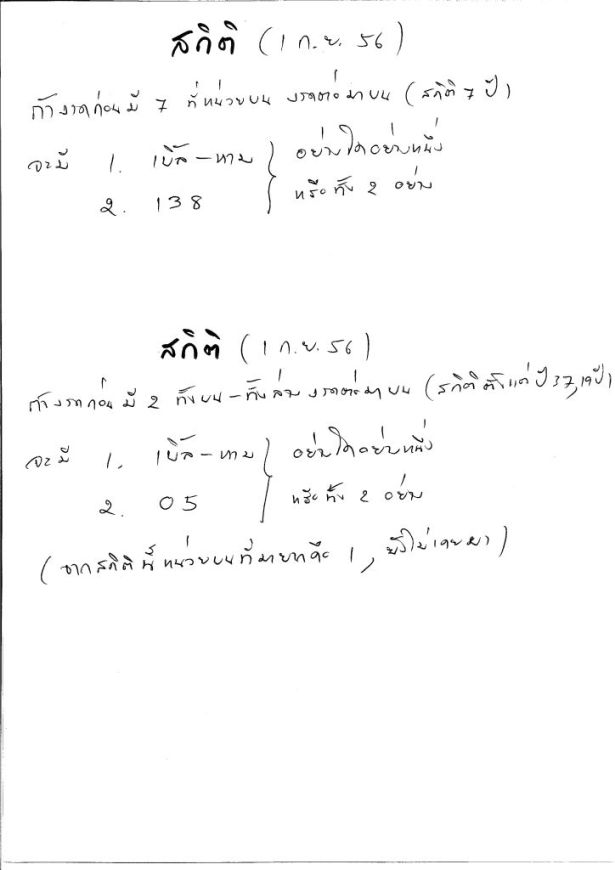 สถิติ (1 ก.ย. 56)
ถ้างวดก่อนมี 7 ที่หน่วยบน งวดต่อมาบน (สถิติ 7 ปี)
จะมี 1. เบิ้ล-หาม } อย่างใดอย่างหนึ่ง
2. 138 หรือทั้ง 2 อย่าง
สถิติ (1 ก.ย. 56)
ถ้างวดก่อนมี 2 ทั้งบน-ทั้งล่าง งวดต่อมาบน (สถิติตั้งแต่ปี 37, 19 ปี)
จะมี 1. เบิ้ล-หาม } อย่างใดอย่างหนึ่ง
2. 05 หรือทั้ง 2 อย่าง
(จากสถิตินี้ หน่วยบนที่มายากคือ 1, ยังไม่เคยมา)